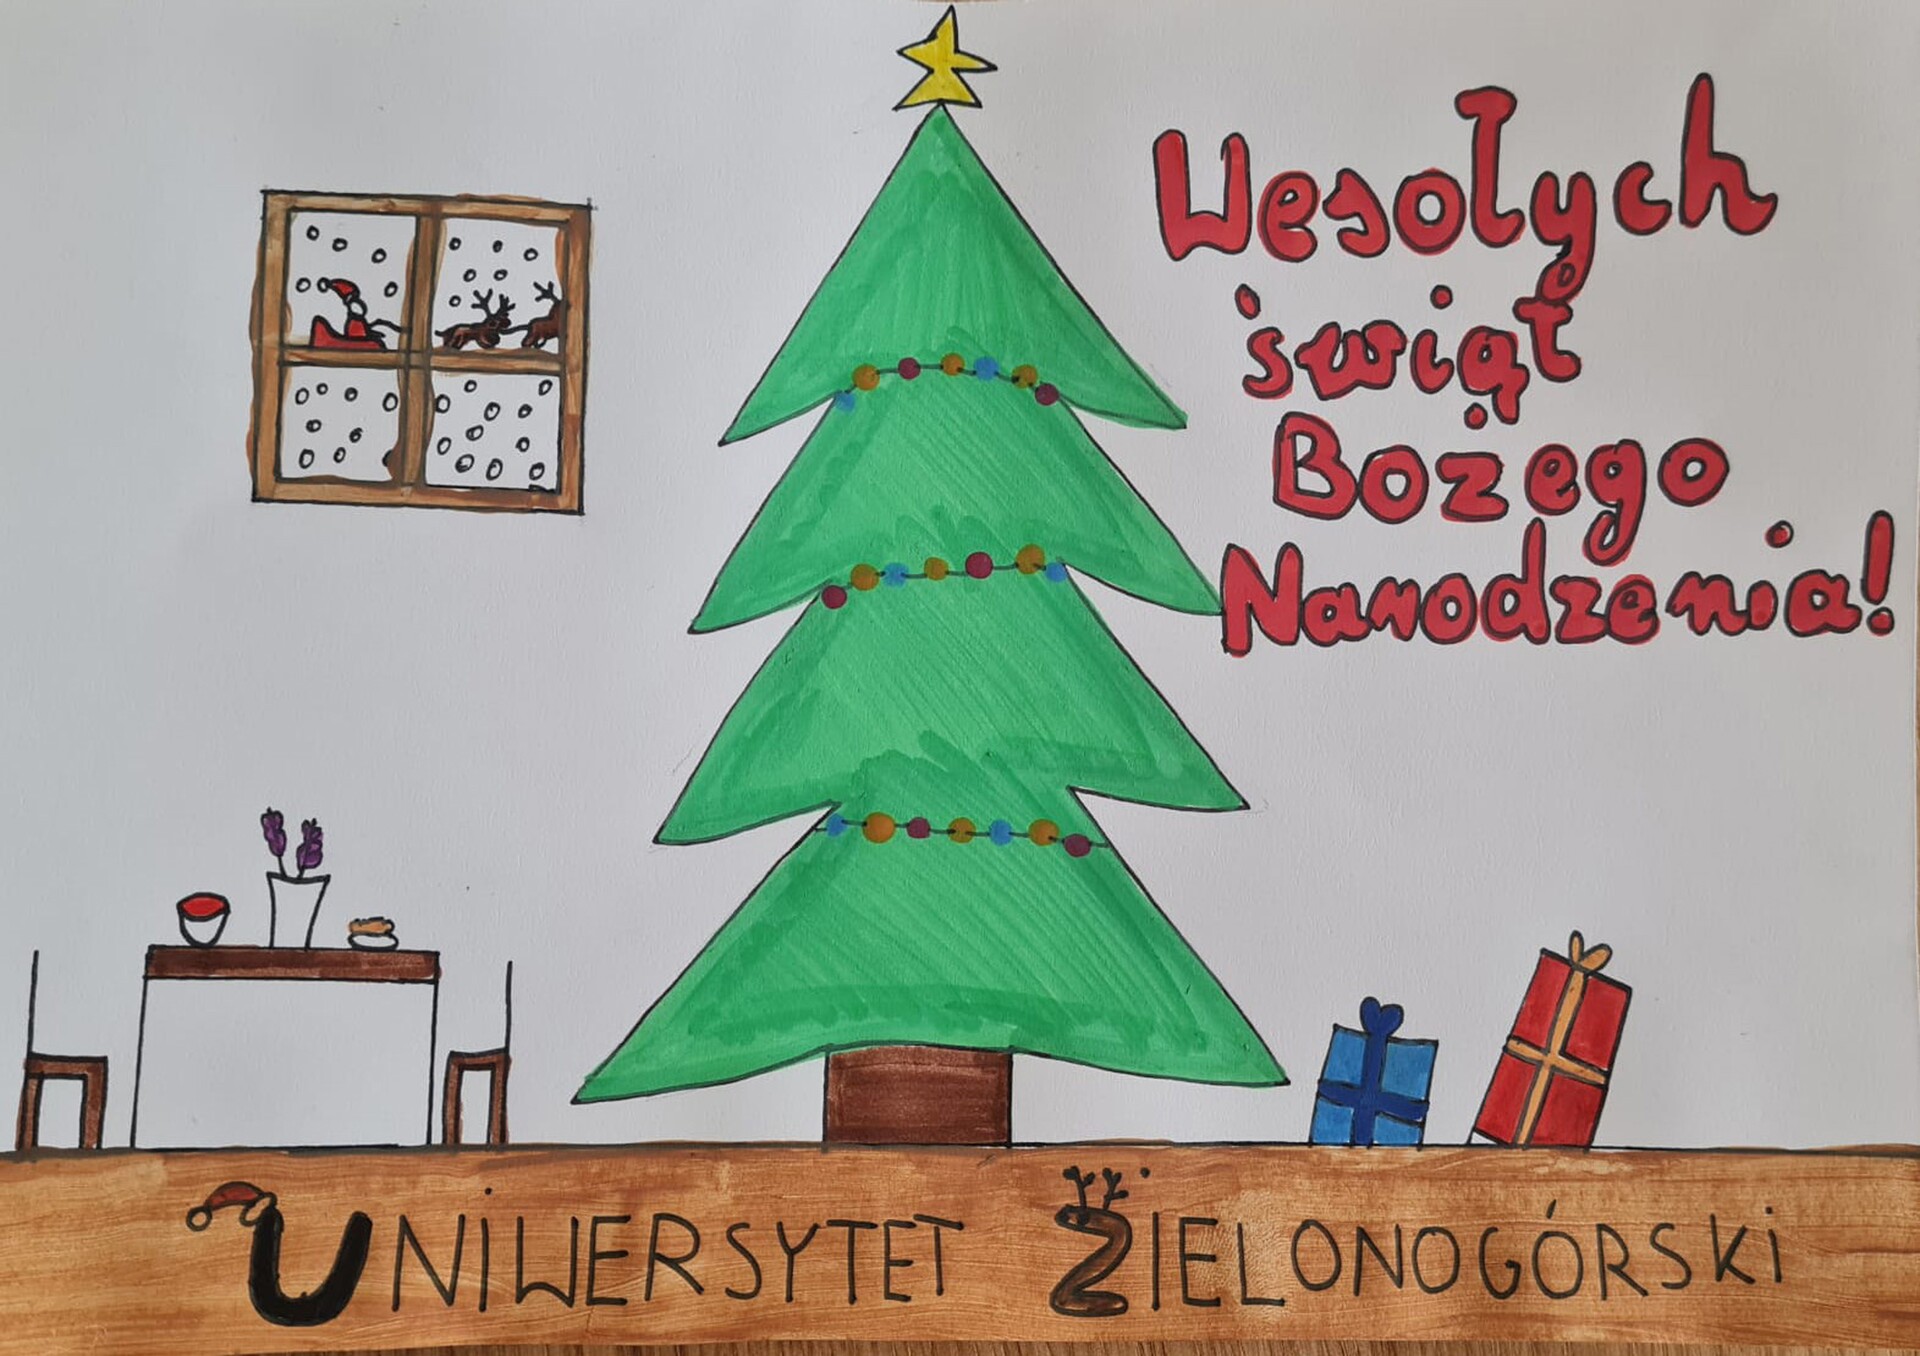 Wesołych
świąt
Bożego
Narodzenia!
UNIWERSYTET ZIELONOGÓRSKI